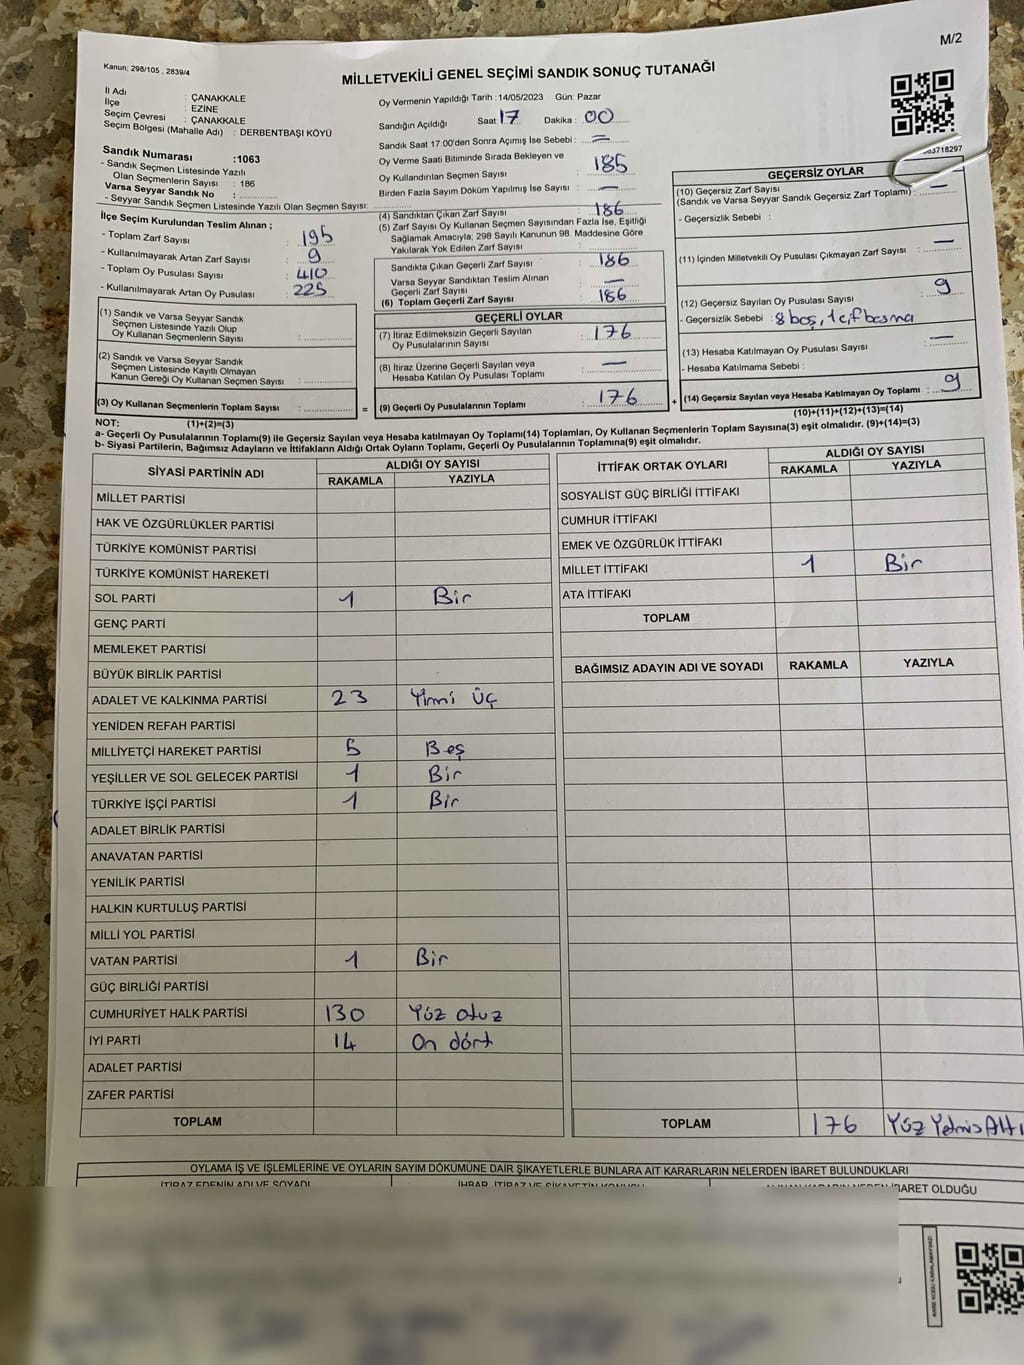 M/2
Kanun; 298/105 , 2839/4
MİLLETVEKİLİ GENEL SEÇİMİ SANDIK SONUÇ TUTANAĞI
İl Adı : ÇANAKKALE
İlçe : EZİNE
Seçim Çevresi : ÇANAKKALE
Seçim Bölgesi (Mahalle Adı) : DERBENTBAŞI KÖYÜ
Sandık Numarası :1063
- Sandık Seçmen Listesinde Yazılı
Olan Seçmenlerin Sayısı : 186
Varsa Seyyar Sandık No :
- Seyyar Sandık Seçmen Listesinde Yazılı Olan Seçmen Sayısı:
İlçe Seçim Kurulundan Teslim Alınan ;
- Toplam Zarf Sayısı : 195
- Kullanılmayarak Artan Zarf Sayısı : 9
- Toplam Oy Pusulası Sayısı : 410
- Kullanılmayarak Artan Oy Pusulası : 225
(1) Sandık ve Varsa Seyyar Sandık
Seçmen Listesinde Yazılı Olup
Oy Kullanan Seçmenlerin Sayısı :
(2) Sandık ve Varsa Seyyar Sandık
Seçmen Listesinde Kayıtlı Olmayan
Kanun Gereği Oy Kullanan Seçmen Sayısı :
(3) Oy Kullanan Seçmenlerin Toplam Sayısı :
Oy Vermenin Yapıldığı Tarih :14/05/2023 Gün: Pazar
Sandığın Açıldığı Saat :17 Dakika : 00
Sandık Saat 17:00'den Sonra Açımış İse Sebebi : =
Oy Verme Saati Bitiminde Sırada Bekleyen ve
Oy Kullandırılan Seçmen Sayısı : 185
Birden Fazla Sayım Döküm Yapılmış İse Sayısı : —
(4) Sandıktan Çıkan Zarf Sayısı : 186
(5) Zarf Sayısı Oy Kullanan Seçmen Sayısından Fazla İse, Eşitliği
Sağlamak Amacıyla; 298 Sayılı Kanunun 98. Maddesine Göre
Yakılarak Yok Edilen Zarf Sayısı :
Sandıkta Çıkan Geçerli Zarf Sayısı : 186
Varsa Seyyar Sandıktan Teslim Alınan
Geçerli Zarf Sayısı : —
(6) Toplam Geçerli Zarf Sayısı : 186
GEÇERLİ OYLAR
(7) İtiraz Edilmeksizin Geçerli Sayılan
Oy Pusulalarının Sayısı : 176
(8) İtiraz Üzerine Geçerli Sayılan veya
Hesaba Katılan Oy Pusulası Toplamı : —
= (9) Geçerli Oy Pusulalarının Toplamı : 176
GEÇERSİZ OYLAR
(10) Geçersiz Zarf Sayısı
(Sandık ve Varsa Seyyar Sandık Geçersiz Zarf Toplamı) : —
- Geçersizlik Sebebi :
(11) İçinden Milletvekili Oy Pusulası Çıkmayan Zarf Sayısı : —
(12) Geçersiz Sayılan Oy Pusulası Sayısı : 9
- Geçersizlik Sebebi : 8 boş, 1 çif basma
(13) Hesaba Katılmayan Oy Pusulası Sayısı : —
- Hesaba Katılmama Sebebi :
+ (14) Geçersiz Sayılan veya Hesaba Katılmayan Oy Toplamı : 9
NOT: (1)+(2)=(3)
(10)+(11)+(12)+(13)=(14)
a- Geçerli Oy Pusulalarının Toplamı(9) ile Geçersiz Sayılan veya Hesaba katılmayan Oy Toplamı(14) Toplamları, Oy Kullanan Seçmenlerin Toplam Sayısına(3) eşit olmalıdır. (9)+(14)=(3)
b- Siyasi Partilerin, Bağımsız Adayların ve İttifakların Aldığı Ortak Oyların Toplamı, Geçerli Oy Pusulalarının Toplamına(9) eşit olmalıdır.
SİYASİ PARTİNİN ADI ALDIĞI OY SAYISI
RAKAMLA YAZIYLA
MİLLET PARTİSİ
HAK VE ÖZGÜRLÜKLER PARTİSİ
TÜRKİYE KOMÜNİST PARTİSİ
TÜRKİYE KOMÜNİST HAREKETİ
SOL PARTİ 1 Bir
GENÇ PARTİ
MEMLEKET PARTİSİ
BÜYÜK BİRLİK PARTİSİ
ADALET VE KALKINMA PARTİSİ 23 Yirmi üç
YENİDEN REFAH PARTİSİ
MİLLİYETÇİ HAREKET PARTİSİ 5 Beş
YEŞİLLER VE SOL GELECEK PARTİSİ 1 Bir
TÜRKİYE İŞÇİ PARTİSİ 1 Bir
ADALET BİRLİK PARTİSİ
ANAVATAN PARTİSİ
YENİLİK PARTİSİ
HALKIN KURTULUŞ PARTİSİ
MİLLİ YOL PARTİSİ
VATAN PARTİSİ 1 Bir
GÜÇ BİRLİĞİ PARTİSİ
CUMHURİYET HALK PARTİSİ 130 Yüz otuz
İYİ PARTİ 14 On dört
ADALET PARTİSİ
ZAFER PARTİSİ
TOPLAM
İTTİFAK ORTAK OYLARI ALDIĞI OY SAYISI
RAKAMLA YAZIYLA
SOSYALİST GÜÇ BİRLİĞİ İTTİFAKI
CUMHUR İTTİFAKI
EMEK VE ÖZGÜRLÜK İTTİFAKI
MİLLET İTTİFAKI 1 Bir
ATA İTTİFAKI
TOPLAM
BAĞIMSIZ ADAYIN ADI VE SOYADI RAKAMLA YAZIYLA
TOPLAM 176 Yüz Yetmiş Altı
OYLAMA İŞ VE İŞLEMLERİNE VE OYLARIN SAYIM DÖKÜMÜNE DAİR ŞİKAYETLERLE BUNLARA AİT KARARLARIN NELERDEN İBARET BULUNDUKLARI
İTİRAZ EDENİN ADI VE SOYADI